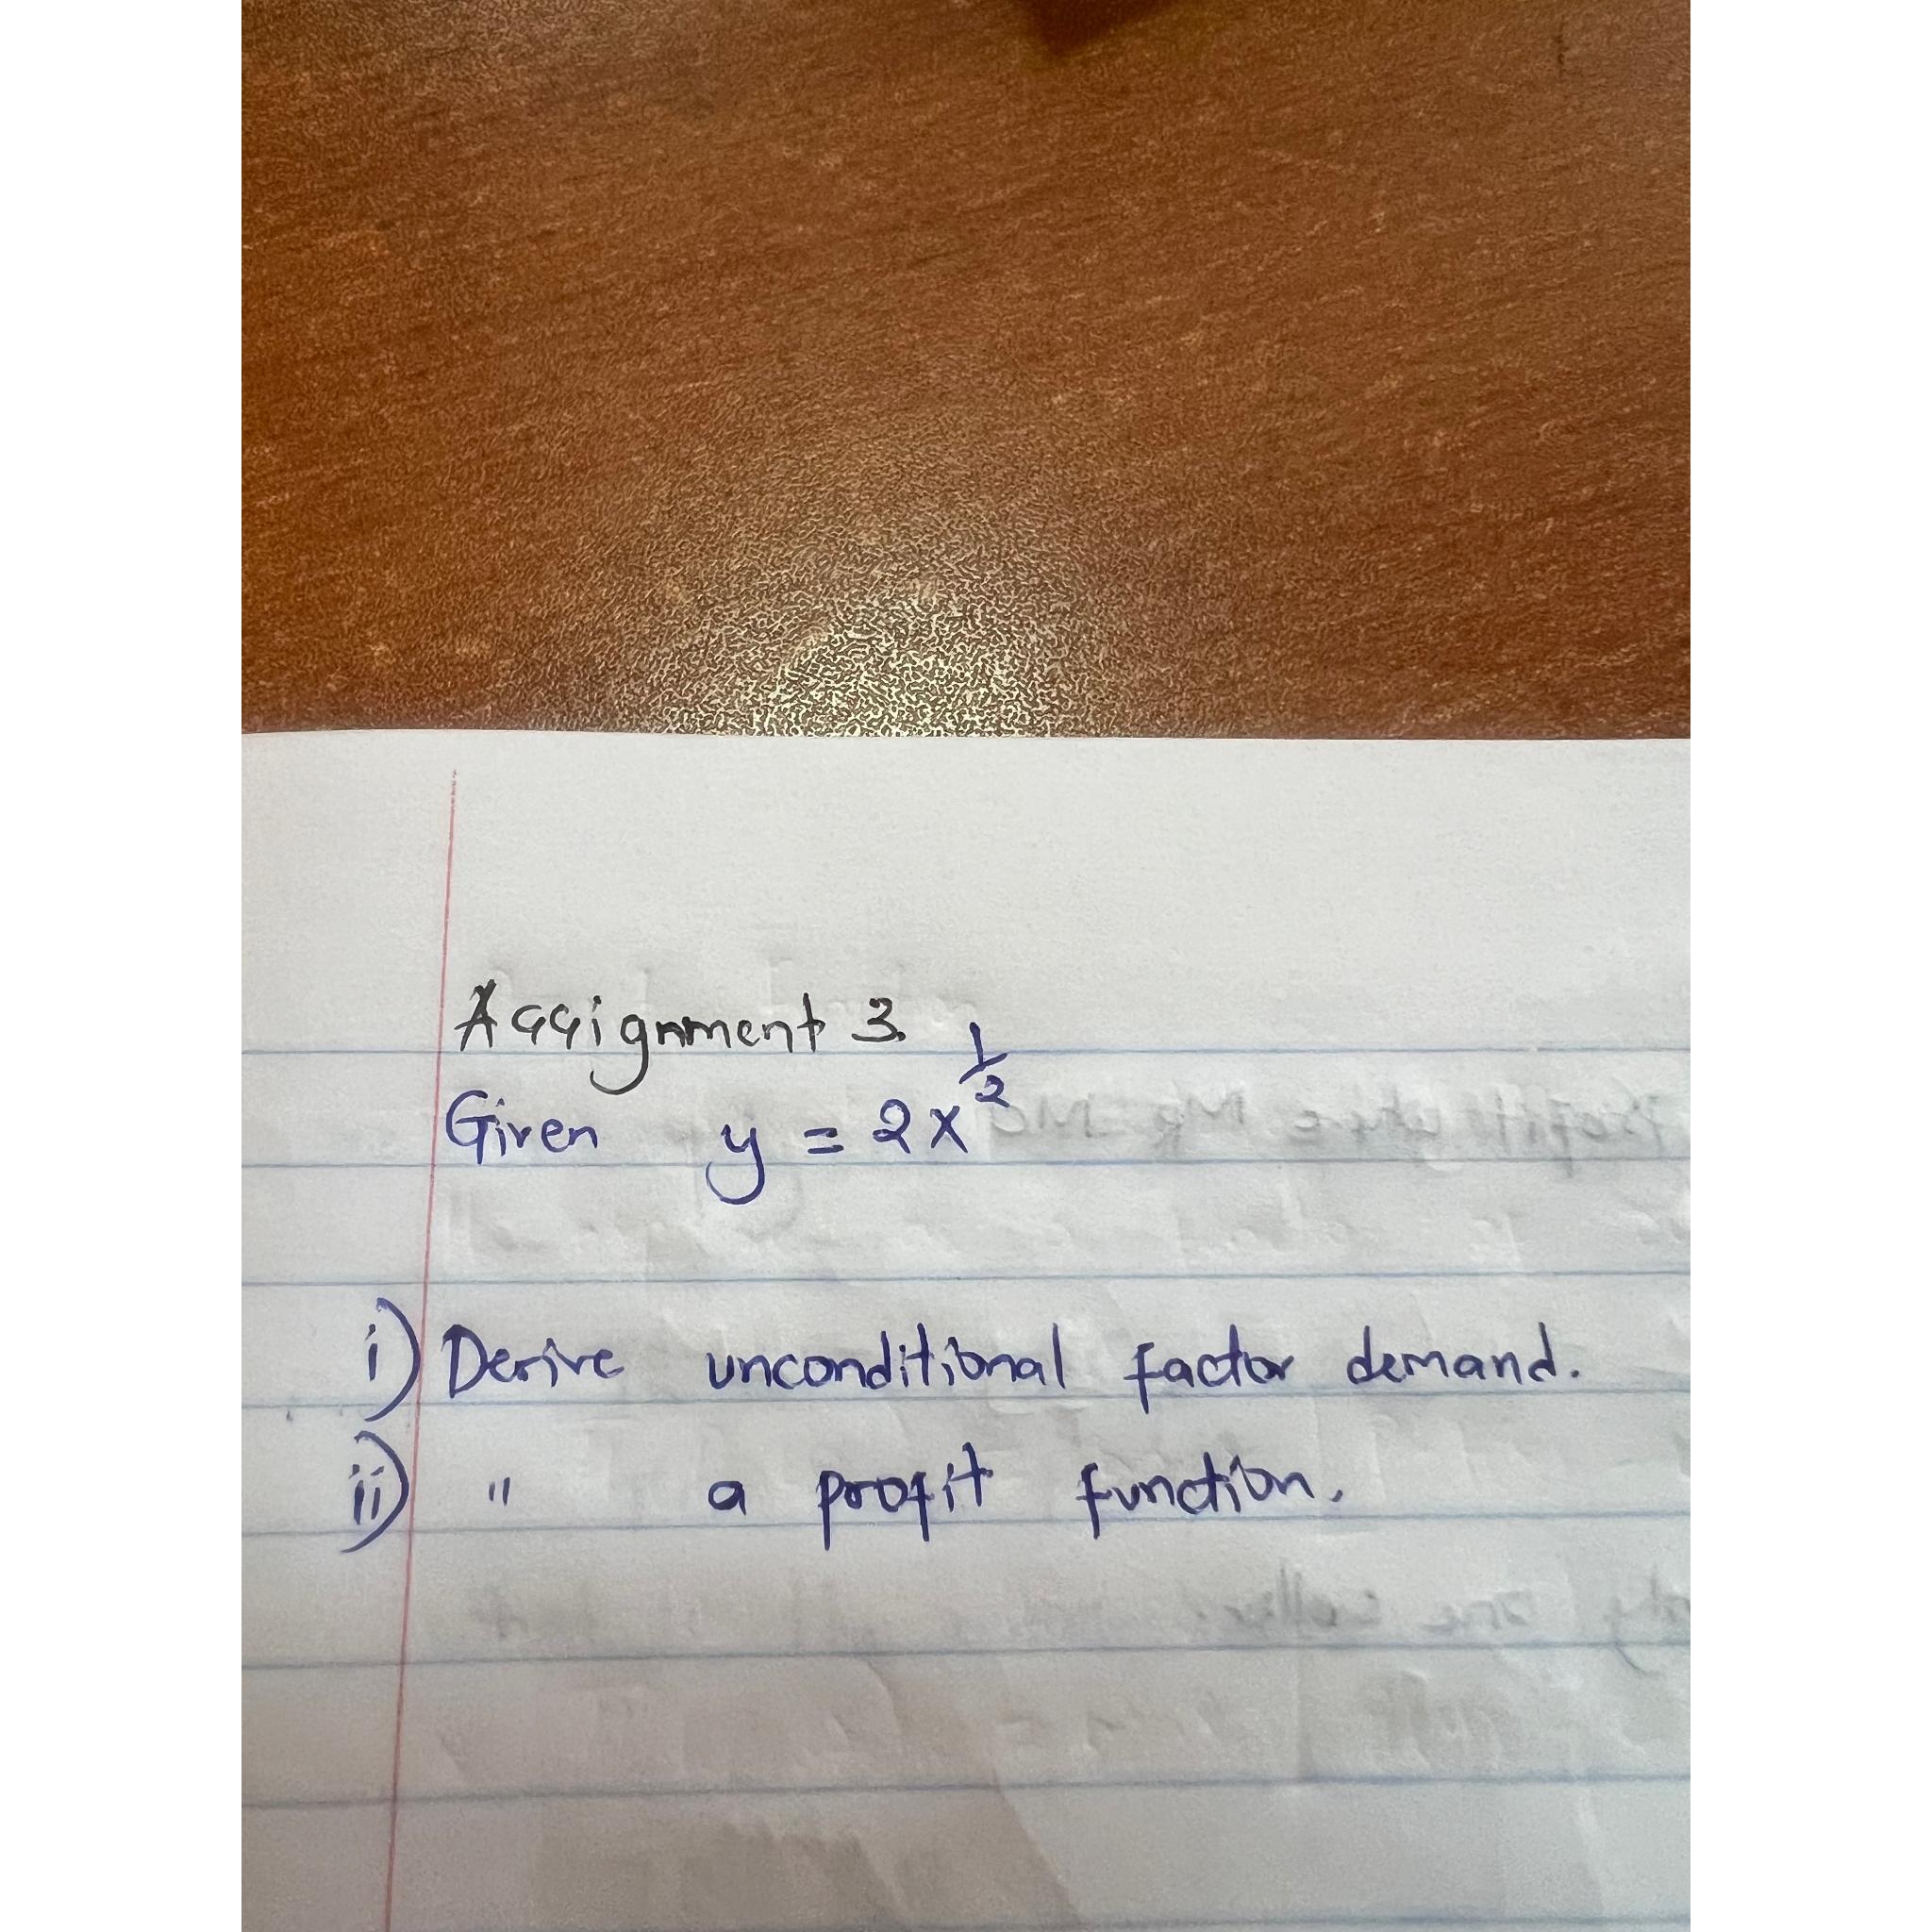 Assignment 3.
Given y = 2x^1/2
i) Derive unconditional factor demand.
ii) " a profit function.